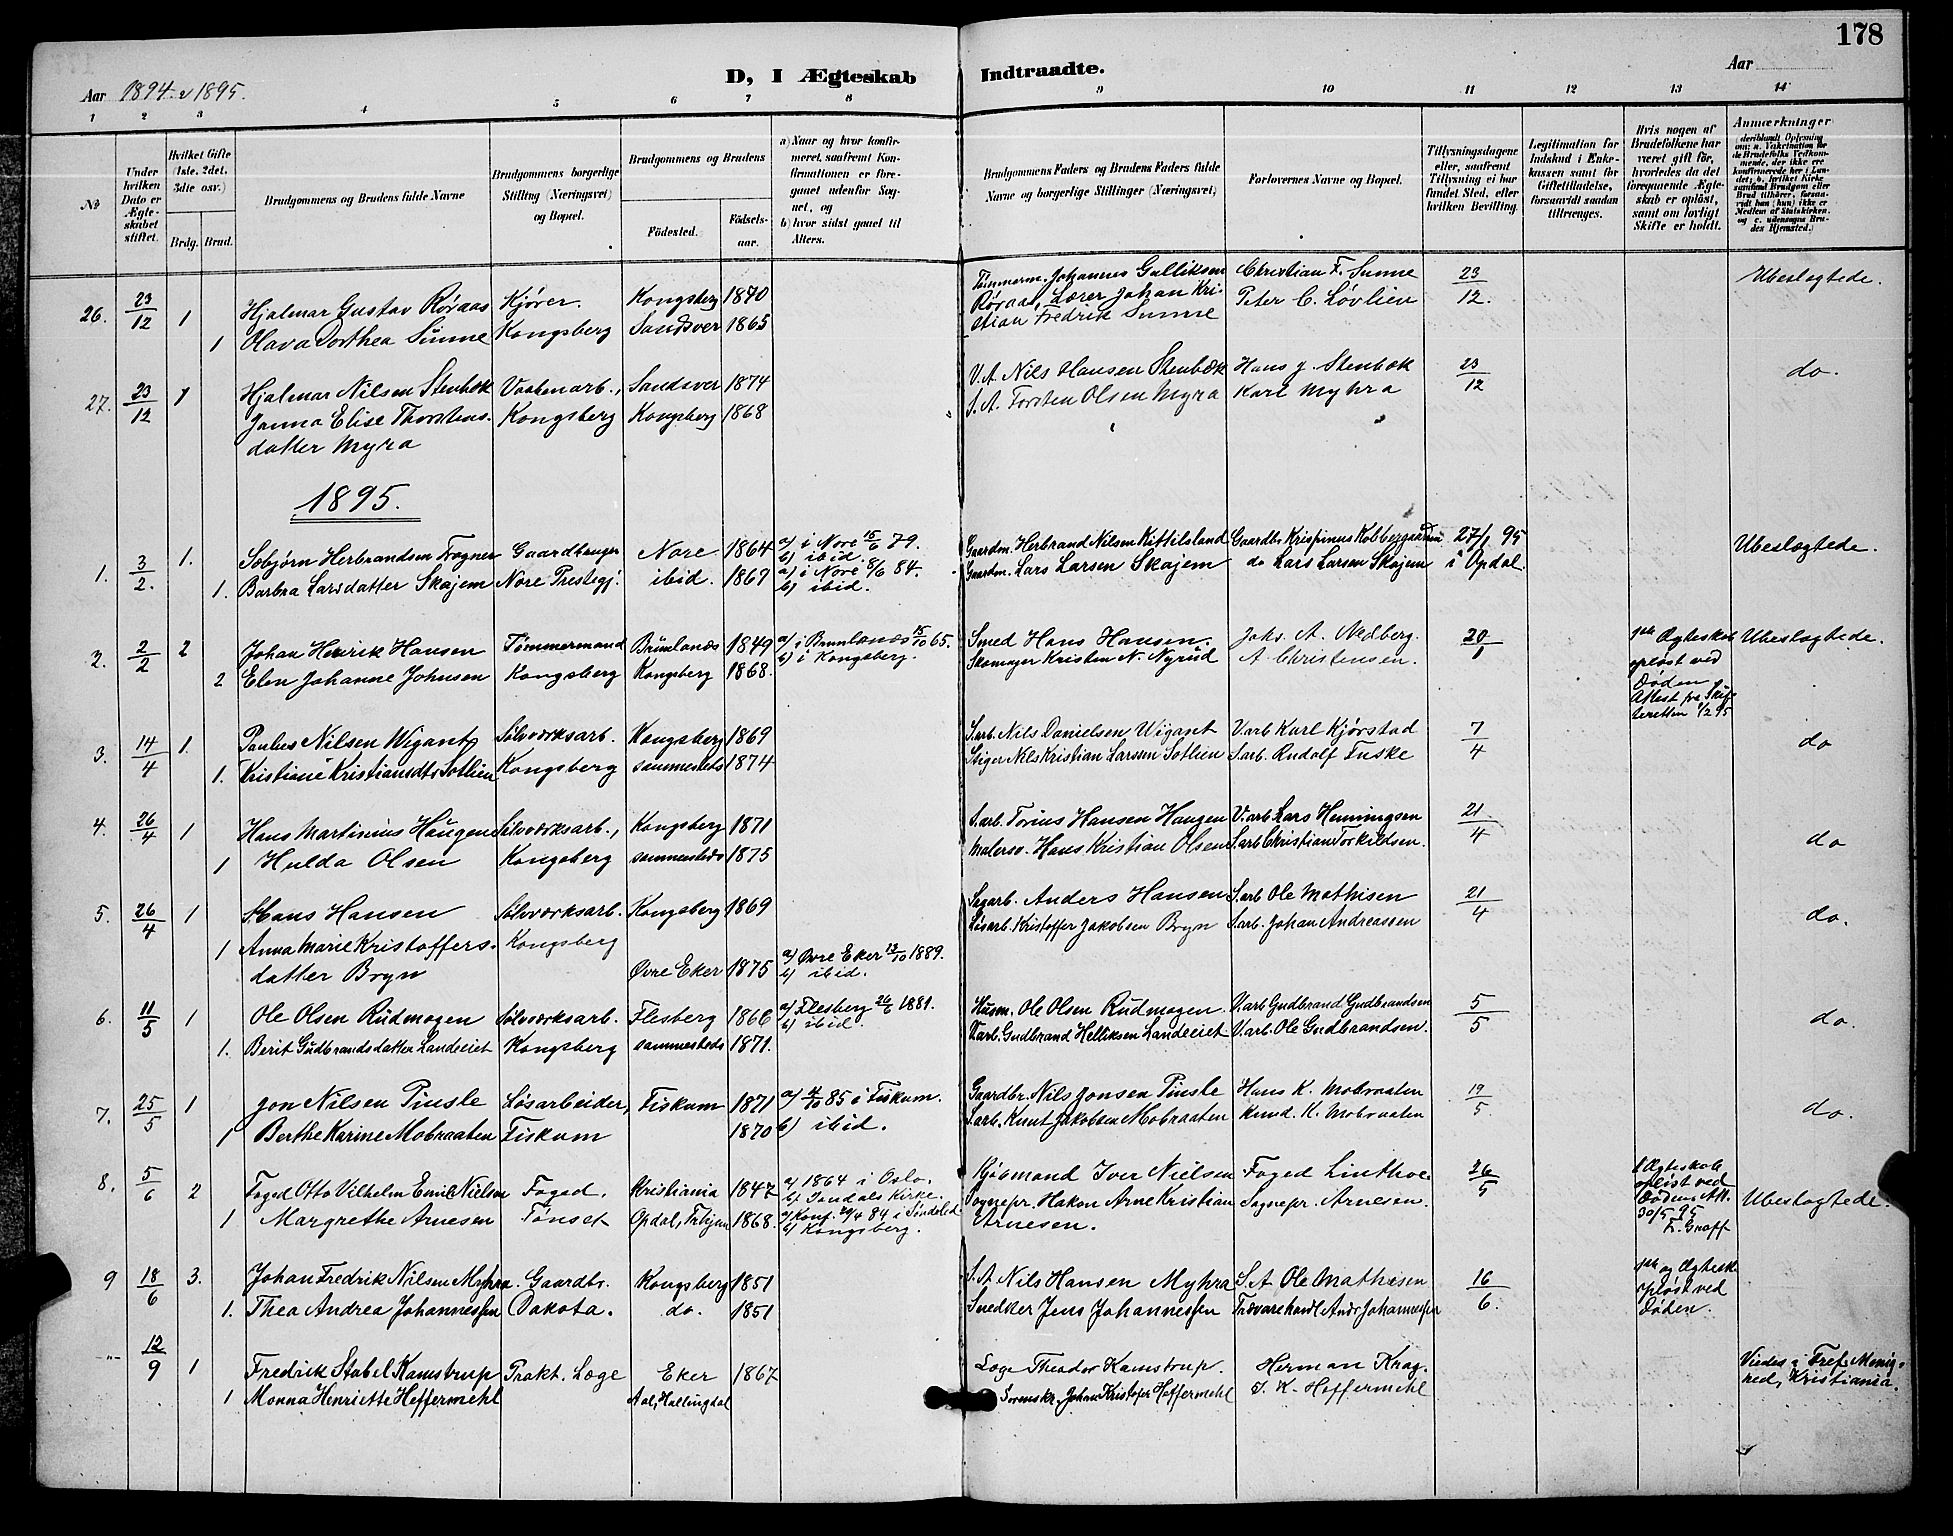 178
Aar 1894 & 1895.
D, I Ægteskab Indtraadte.
Aar
1 2 3 4 5 6 7 8 9 10 11 12 13 14
No
Under hvilken Dato er Ægteskabet stiftet.
Hvilket Gifte (1ste, 2det, 3die osv.)
Brdg. Brud.
Brudgommens og Brudens fulde Navne
Brudgommens borgerlige Stilling (Næringsvei) og Bopæl.
Brudgommens og Brudens
Fødested. Fødselsaar.
a) Naar og hvor konfirmeret, saafremt Konfirmationen er foregaaet udenfor Sognet, og
b) hvor sidst gaaet til Alters.
Brudgommens Faders og Brudens Faders fulde Navne og borgerlige Stillinger (Næringsvei)
Forlovernes Navne og Bopæl.
Tillysningsdagene eller, saafremt Tillysning ei har fundet Sted, efter hvilken Bevilling.
Legitimation for Indskud i Enkekassen samt for Giftetilladelse, forsaavidt saadan tiltrænges.
Hvis nogen af Brudefolkene har været gift før, hvorledes da det foregaaende Ægteskab er opløst, samt om lovligt Skifte er holdt.
Anmærkninger
26. 23/12 1 Hjalmar Gustav Røraas Kjører. Kongsberg 1870 Tømmerm. Johannes Gulliksen Christian F. Sunne 23/12. Ubeslægtede.
1 Olava Dorthea Sunne Kongsberg Sandsver 1865 Røraas, Lærer Johan Kristian Fredrik Sunne Peter C. Løvlien
27. 23/12 1 Hjalmar Nilsen Stenbæk Vaabenarb., Sandsver 1874 V.A Nils Hansen Stenbæk Hans J. Stenbæk 23/12 do.
Janna Elise Thorstensdatter Myra Kongsberg Kongsberg 1868 S.A. Torsten Olsen Myra Karl Myhra
1895.
1. 3/2. 1. Sebjørn Herbrandsen Frogner Gaardbruger Nore 1864 a) i Nore 15/6 79. b) ibid. Gaardm. Herbrand Nilsen Kittilsland Gaardb. Krispinus 27/1 95 Ubeslægtede.
1. Barbra Larsdatter Skajem Nore Prestegj. ibid. 1867 a) i Nore 8/6 84. b) ibid. Gaardm. Lars Larsen Skajem do Lars Larsen Skajem i Opdal.
2. 2/2 2 Johan Henrik Hansen Tømmermand Brunlanæs 1849 a) i Brunlanæs 15/10 65. b) i Kongsberg. Smed Hans Hansen. Johs. A. Nedberg. 20/1 1ste Ægteskab opløst ved Døden Attest fra Skifteretten 1/2 95 Ubeslægtede.
2 Elen Johanne Johnsen Kongsberg Kongsberg 1868. Skomager Kristen N. Nyrud A. Christensen.
3. 14/4 1. Paulus Nilsen Wigant Sølvværksarb. Kongsberg 1869 S.arb. Nils Danielsen Wigant V.arb Karl Kjørstad 7/4 do
1. Kristine Kristiansdtr Sotlien Kongsberg sammesteds 1874 Stiger Nils Kristian Larssen Sotlien S.arb. Rudolf Tuske
4. 26/4 1 Hans Martinius Haugen Sølvværksarb., Kongsberg 1871 S.arb. Torius Hansen Haugen V.arb Lars Henningsen 21/4 do
1 Hulda Olsen Kongsberg sammesteds 1875 Malersv. Hans Kristian Olsen S.arb Christian Torkildsen.
5. 26/4 1 Hans Hansen Sølvværksarb. Kongsberg 1869 Sagarb. Anders Hansen S.arb Ole Mathisen 21/4 do.
1 Anna Marie Kristoffersdatter Bryn Kongsberg Øvre Eker 1875 a) Øvre Eker 13/10 1889. b) ibid. Løsarb. Kristoffer Jakobsen Bryn S.arb. Johan Andreassen
6. 11/5 1 Ole Olsen Rudmogen Sølvværksarb. Flesberg 1866 a) Flesberg 26/6 1881. b) ibid. Husm. Ole Olsen Rudmogen V.arb Gudbrand Gudbrandsen 5/5 do.
1. Berit Gudbrandsdatter Landeeiet Kongsberg sammesteds 1871. V.arb. Gudbrand Helliksen Landeeiet V.arb Ole Gudbrandsen.
7. 25/5 1 Jon Nilsen Tinsle Løsarbeider, Fiskum 1871 a) 85 i Fiskum. Gaardbr. Nils Jonsen Tinsle Hans K. Mobraaten 19/5. do.
1 Berthe Karine Mobraaten Fiskum 1870 b) ibid. S.arb. Knut Jakobsen Mobraaten Knud. K. Mobraaten
8. 5/6 2 Foged Otto Vilhelm Emil Nielsen Foged. Kristiania 1847 a) 1864 i Oslo. Kjøbmand Iver Nielsen Foged Linthoe 26/5 1 Ægteskab opløst ved Dødens Att. 30/5 95 Ubeslægtede.
1 Margrethe Arnesen Tønset Opdal, Trhjem 1868. a) Konf. 20/4 84 i Søndeled b) Kongsberg. Sogepr. Hakon Arne Kristian Arnesen. Sognepr Arnesen.
9 18/6 3. Johan Fredrik Nilsen Myhra Gaardbr. Kongsberg 1851 S.A Nils Hansen Myhra S.A Ole Mathisen 16/6. opløst ved Døden.
1. Thea Andrea Johannessen Dakota. do. 1851 Snedker Jens Johannessen Trævarehandl Andr Johannessen
-"- 12/9 1 Fredrik Stabel Kamstrup Prakt. Læge Eker 1867 Læge Theodor Kamstrup. Herman Krag. Viedes i Tref. Menighed, Kristiania.
1 Monna Henriette Heffermehl Aal, Hallingdal Sorenskr. Johan Kristofer Heffermehl T. K. Heffermehl